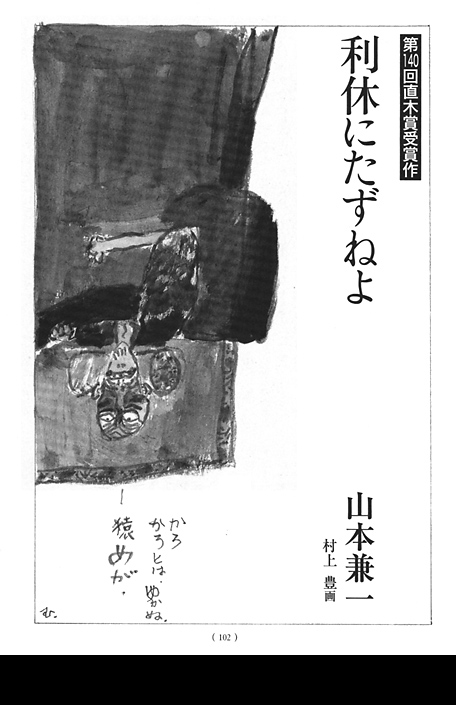 第140回直木賞受賞作
利休にたずねよ
山本兼一
村上 豊画
かろ
かろとは、ゆかぬ。
猿めが。
む.
( 102 )